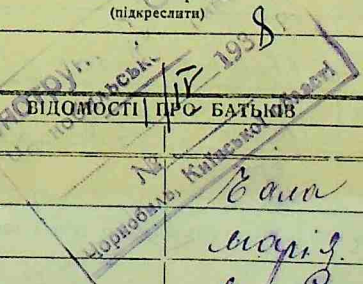 (підкреслити)
193 8 р.
IV
ВІДОМОСТІ ПРО БАТЬКІВ
№
Чорнобиль, Київської області
Чала
Марія